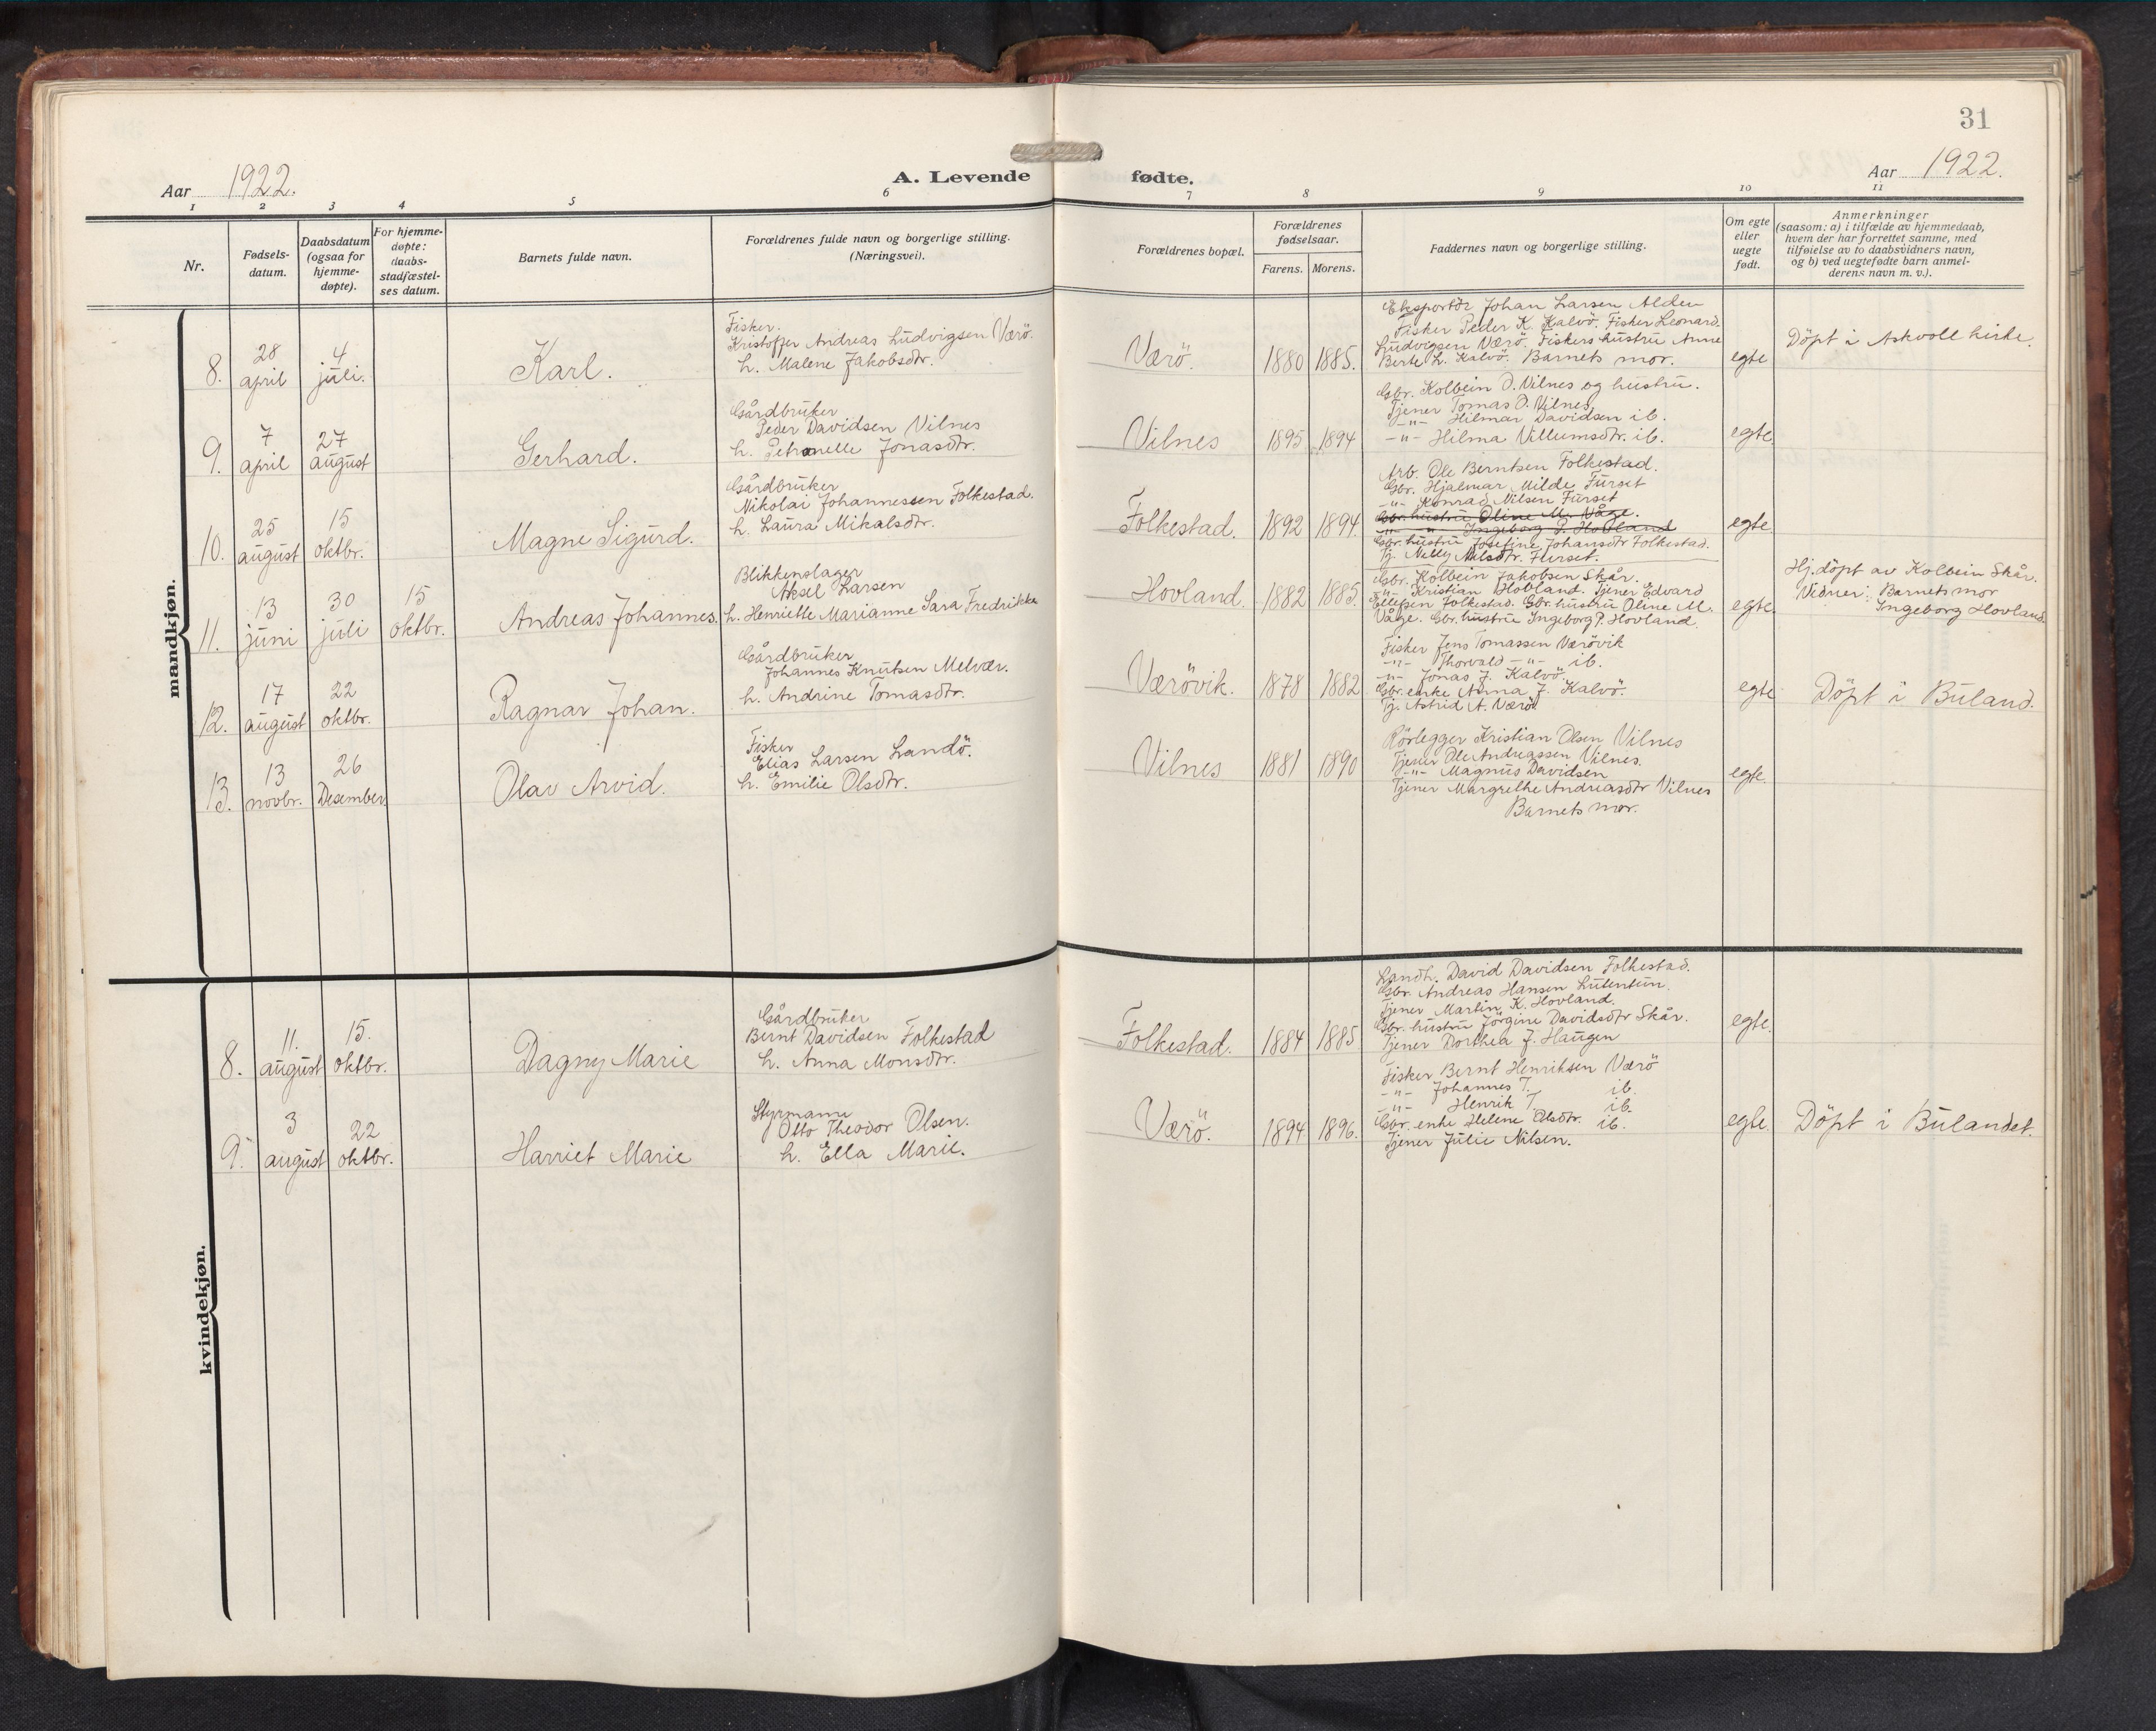 31
Aar 1922.
A. Levende fødte.
Aar 1922.
1 2 3 4 5 6 7 8 9 10 11
Nr.
Fødsels-
datum.
Daabsdatum
(ogsaa for
hjemme-
døpte).
For hjemme-
døpte:
daabs-
stadfæstel-
ses datum.
Barnets fulde navn.
Forældrenes fulde navn og borgerlige stilling.
(Næringsvei).
Forældrenes bopæl.
Forældrenes
fødselsaar.
Farens. Morens.
Faddernes navn og borgerlige stilling.
Om egte
eller
uegte
født.
Anmerkninger
(saasom: a) i tilfælde av hjemmedaab,
hvem der har forrettet samme, med
tilføielse av to daabsvidners navn,
og b) ved uegtefødte barn anmel-
derens navn m. v.).
mandkjøn.
8.
28
april
4
juli.
Karl.
Fisker.
Kristoffer Andreas Ludvigsen Værö.
h. Malene Jakobsdtr.
Værö.
1880
1885.
Eksportör Johan Larsen Alden
Fisker Peder K. Kalvö. Fisker Leonard
Ludvigsen Værö. Fiskers hustru Anne
Berte L. Kalvö. Barnets mor.
egte
Döpt i Askvoll kirke.
9.
7
april
27
august
Gerhard.
Gårdbruker
Peder Davidsen Vilnes
h. Petronelle Jonasdtr.
Vilnes
1895
1894
Gbr. Kolbein D. Vilnes og hustru.
Tjener Tomas D. Vilnes
-"- Hilmar Davidsen ib.
-"- Hilma Villumsdtr. ib.
egte
10.
25
august
15
oktbr.
Magne Sigurd.
Gårdbruker
Nikolai Johannessen Folkestad.
h. Laura Mikalsdtr.
Folkestad.
1892
1894.
Arb. Ole Berntsen Folkestad.
Gbr. Hjalmar Milde Furset
-"- Konrad Nilsen Furset
Gbr. hustru Oline M. Våge.
-"- -"- Ingeborg P. Hovland
Gbr. hustru Josefine Johansdtr Folkestad.
Tj. Nelly Nilsdtr. Furset.
egte.
11.
13
juni
30
juli
15
oktbr.
Andreas Johannes.
Blikkenslager
Aksel Larsen
h. Henriette Marianne Sara Fredrikke
Hovland.
1882
1885.
Gbr. Kolbein Jakobsen Skår.
-"- Kristian Hovland. Tjener Edvard
Ellefsen Folkestad. Gbr. hustru Oline M.
Våge. Gbr. hustru Ingeborg P. Hovland.
egte
Hj.döpt av Kolbein Skår.
Vidner: Barnets mor
Ingeborg Hovland.
12.
17
august
22
oktbr.
Ragnar Johan.
Gårdbruker
Johannes Knutsen Melvær.
h. Andrine Tomasdtr.
Værövik.
1878
1882
Fisker Jens Tomassen Værövik
-"- Thorvald -"- ib.
-"- Jonas J. Kalvö.
Gbr. enke Anna J. Kalvö.
Tj. Astrid A. Værö
egte
Döpt i Buland.
13.
13
novbr.
26
Desember
Olav Arvid.
Fisker
Elias Larsen Landö.
h. Emilie Olsdtr.
Vilnes
1881
1890
Rörlegger Kristian Olsen Vilnes
Tjener Ole Andreassen Vilnes.
-"- Magnus Davidsen
Tjener Margrethe Andreasdtr Vilnes
Barnets mor.
egte.
kvindekjøn.
8.
11.
august
15.
oktbr.
Dagny Marie
Gårdbruker
Bernt Davidsen Folkestad
h. Anna Monsdtr.
Folkestad.
1884
1885
Landh. David Davidsen Folkestad.
Gbr. Andreas Hansen Lutentun.
Tjener Martin K. Hovland.
Gbr. hustru Jörgine Davidsdtr Skår.
Tjener Dorthea J. Haugen
egte.
9.
3
august
22
oktbr.
Harriet Marie
Styrmann
Otto Theodor Olsen.
h. Ella Marie.
Værö.
1894
1896.
Fisker Bernt Henriksen Værö
-"- Johannes T. ib.
-"- Henrik T. ib.
Gbr. enke Helene Olsdtr. ib.
Tjener Julie Nilsen.
egte.
Döpt i Bulandet.